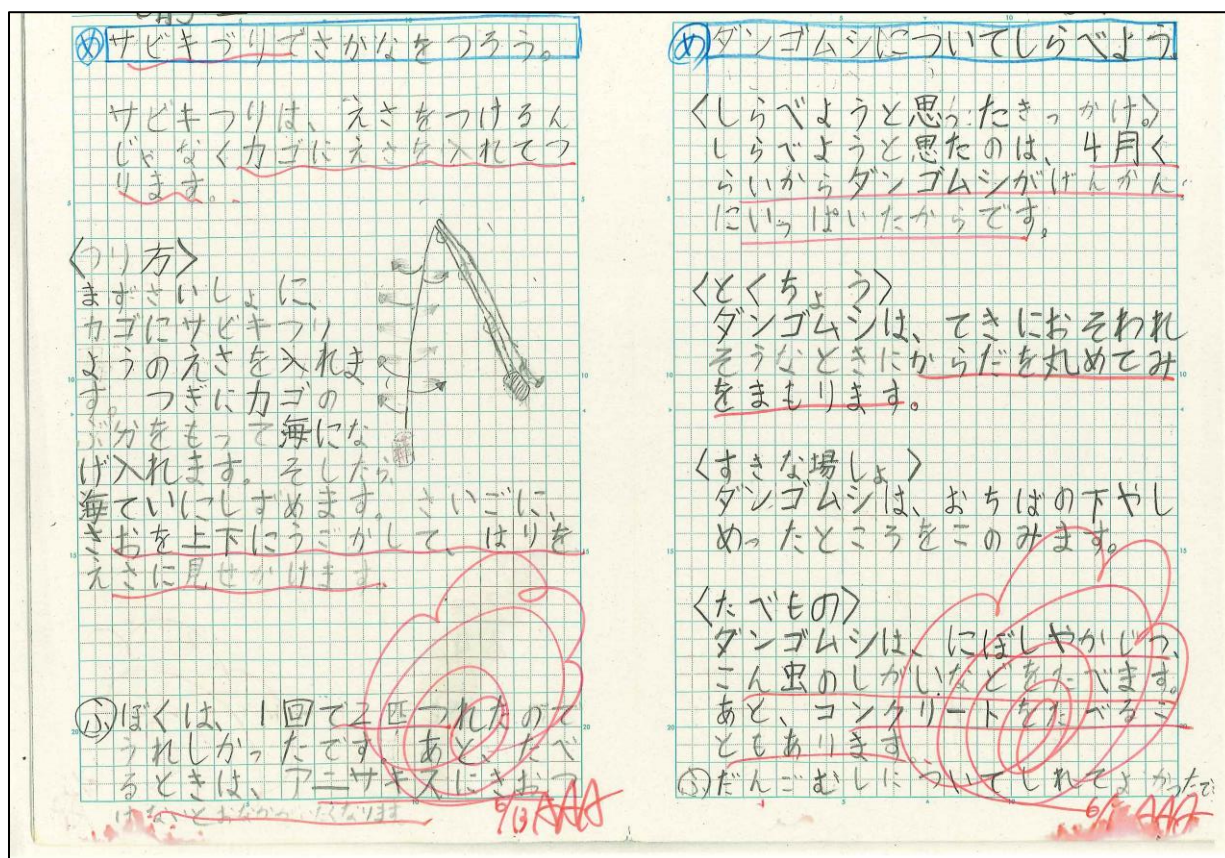 め サビキづりでさかなをつろう。
サビキつりは、えさをつけるん
じゃなくカゴにえさを入れてつ
ります。
〈つり方〉
まずさいしょに、
カゴにサビキつり
ようのえさを入れま
す。つぎにカゴの
ぶ分をもって海にな
げ入れます。そしたら、
海ていにしずめます。さいごに、
さおを上下にうごかして、はりを
えさに見せかけます。
ふ ぼくは、1回で2匹つれたので
うれしかったです。あと、たべ
るときは、アニサキスにきおつ
けないとおなかがいたくなります
6/13 AAA
め ダンゴムシについてしらべよう
〈しらべようと思ったきっかけ〉
しらべようと思たのは、4月く
らいからダンゴムシがげんかん
にいっぱいたからです。
〈とくちょう〉
ダンゴムシは、てきにおそわれ
そうなときにからだを丸めてみ
をまもります。
〈すきな場しょ〉
ダンゴムシは、おちばの下やし
めったところをこのみます。
〈たべもの〉
ダンゴムシは、にぼしやかじつ、
こん虫のしがいなどをたべます。
あと、コンクリートをたべるこ
ともあります。
ふ だんごむしについてしれてよかったで
AAA